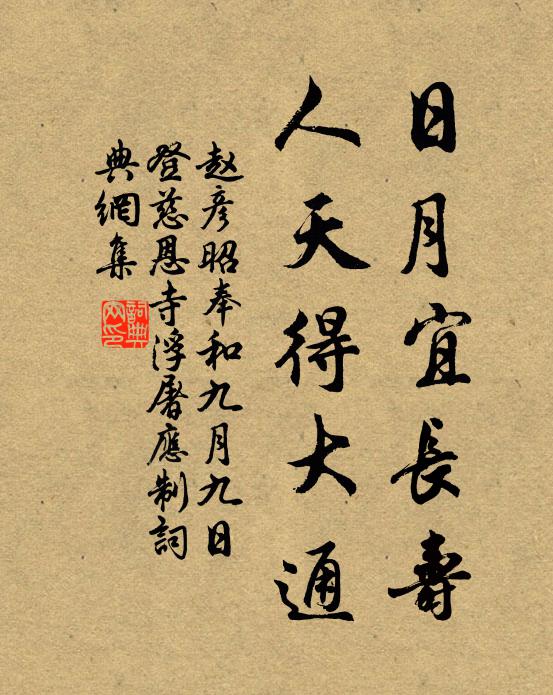 日月宜長壽
人天得大通
赵彦昭奉和九月九日
登慈恩寺浮屠應制詞
典網集
詞典
网印